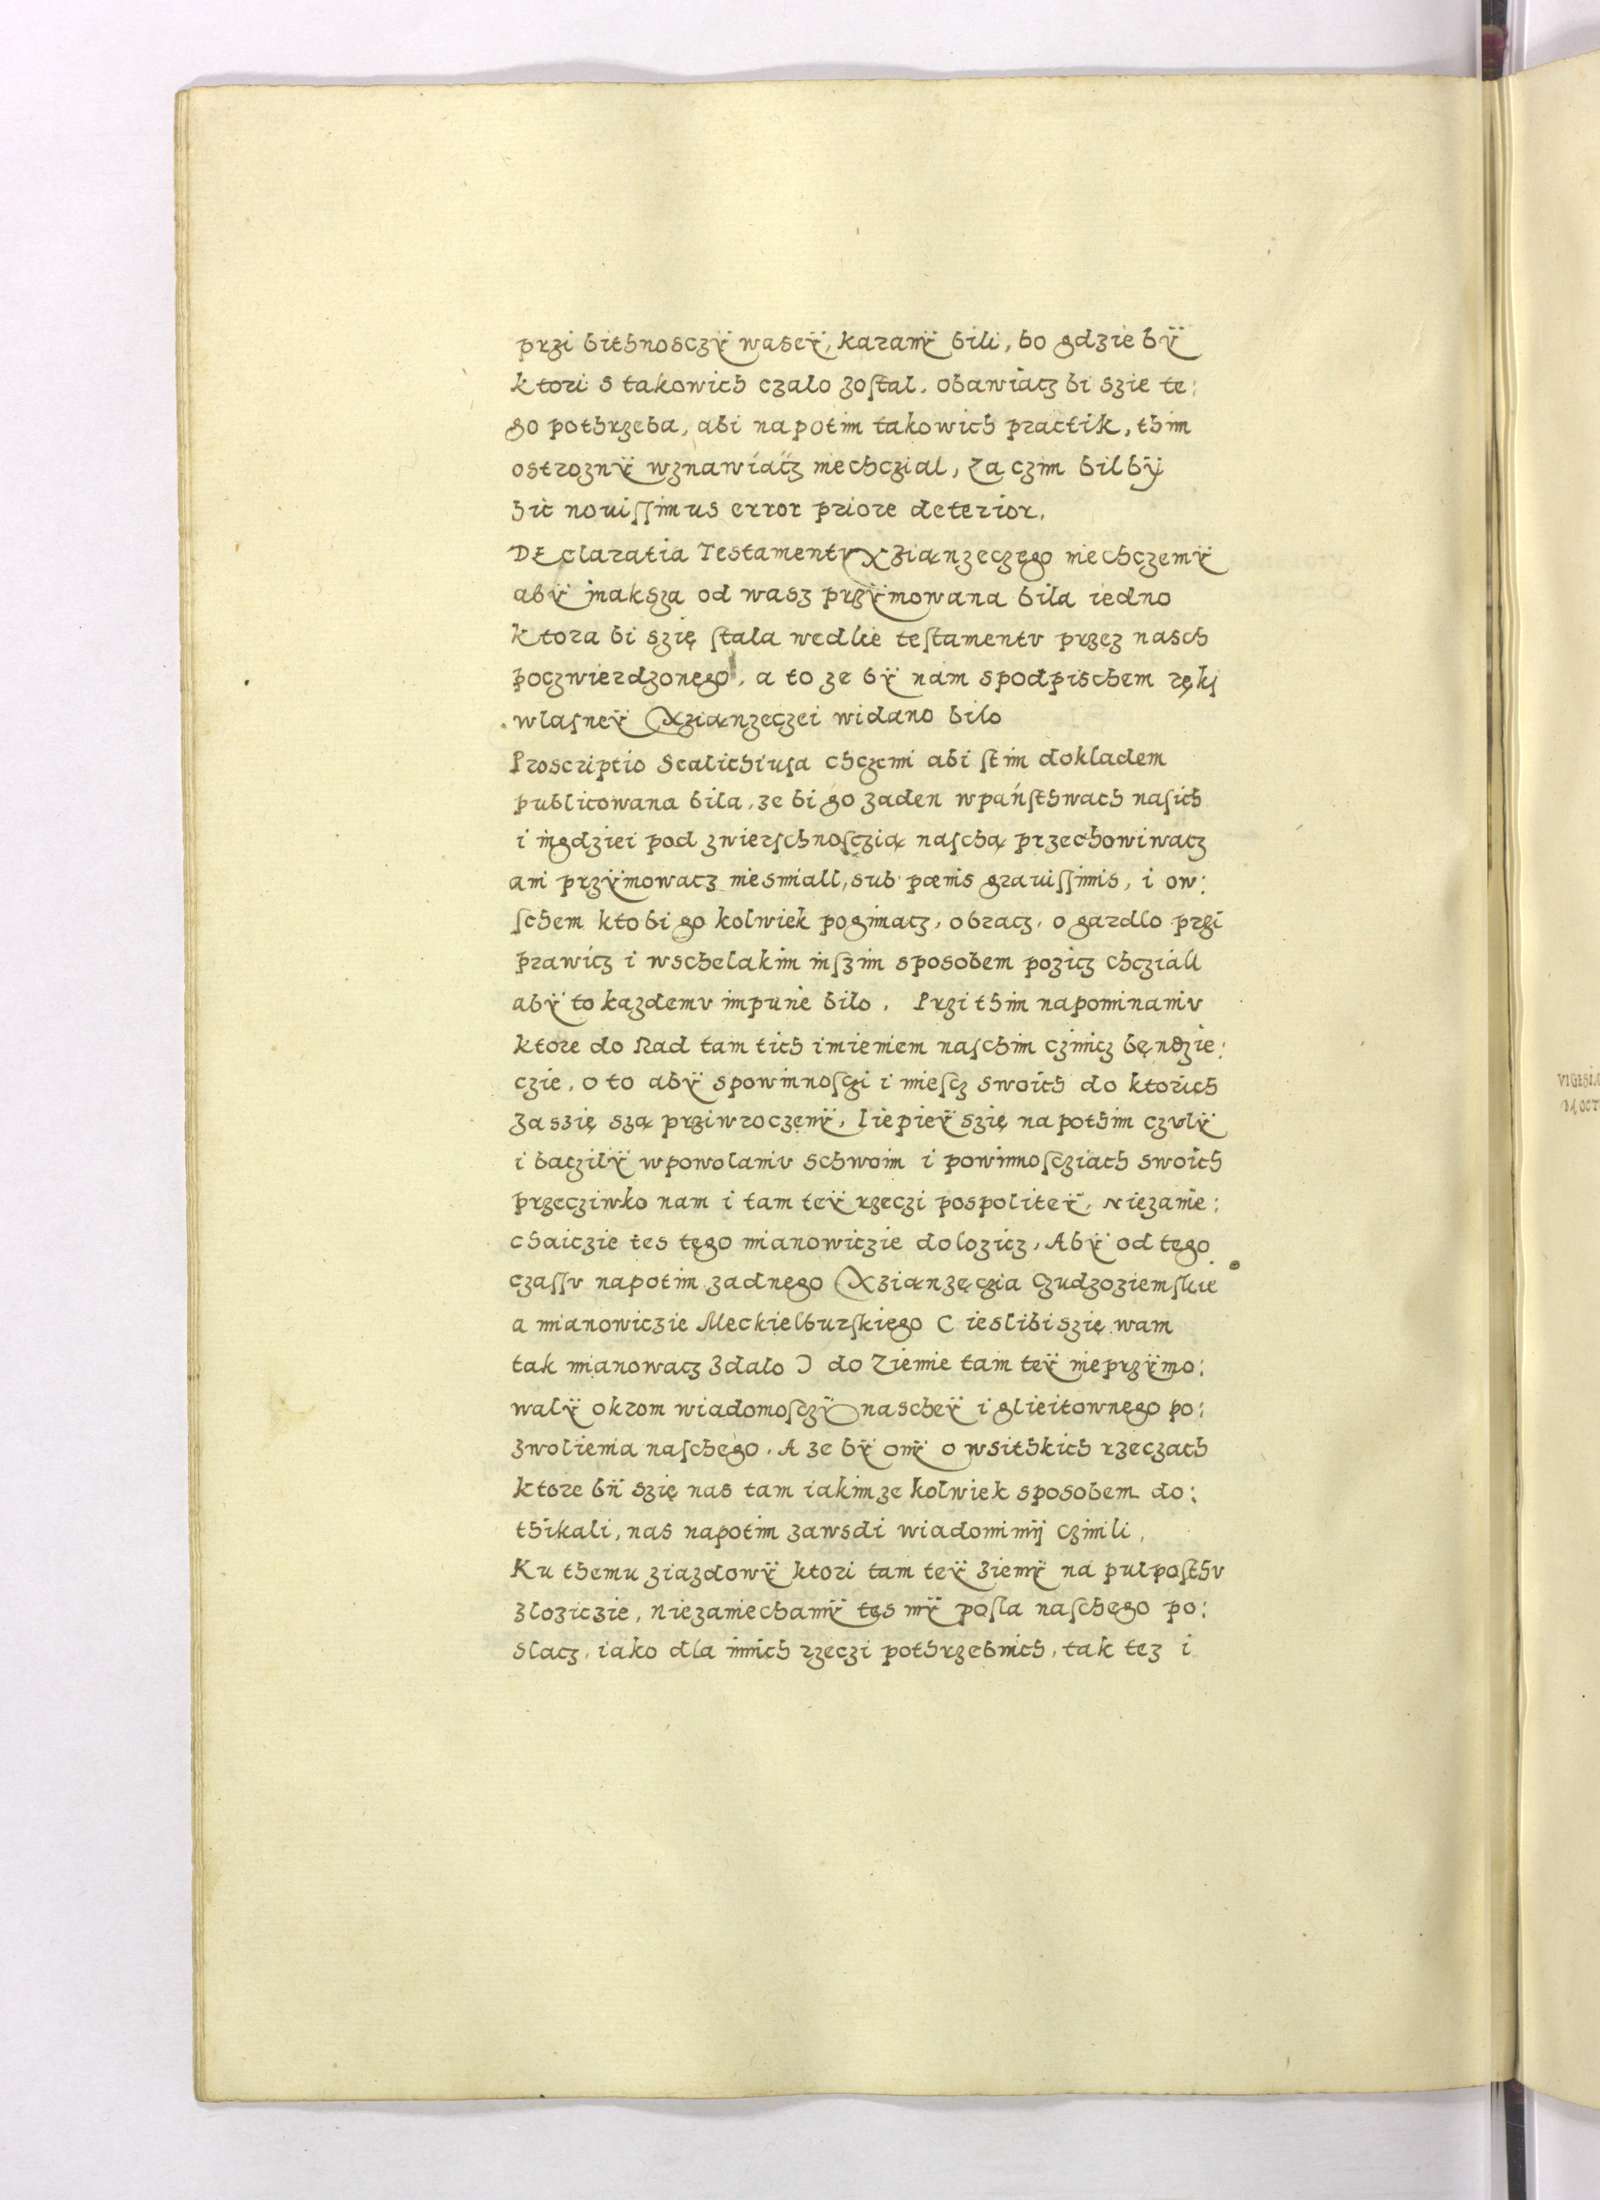 przi bithnosczÿ wasеÿ, karanÿ bili, bo gdzie bÿ
ktori s takowich czalo zostal, obawiacz bi szie te:
go pothrzeba, abi napotim takowich practik, thim
ostroznÿ wznawiacz niechczial, Za czim bil bÿ
hic nouissimus error priore deterior.
DEclaratia Testamentv Xzianzeczego niechczemÿ
abÿ inaksza od wasz przÿmowana bila iedno
ktora bi szię stala wedlie testamentv przez nasch
poczwierdzonego, a to ze bÿ nam spodpischem ręki
wlasneÿ Xzianzeczei widano bilo
Proscriptio Scalichiusa chczemi abi stim dokladem
publicowana bila, ze bi go zaden wpaństhwach nasich
i nigdziei pod zwierschnosczią naschą przechowiwacz
ani przÿmowacz niesmiall, sub pœnis grauissimis, i ow:
schem ktobi go kolwiek pogimacz, obracz, o gardlo przi
prawicz i wschelakim inszim sposobem pozicz chcziall
abÿ to kazdemv impune bilo. Przi thim napominaniv
ktore do Rad tam tich imieniem naschim czinicz będzie:
czie, o to abÿ spowinnosczi i miescz swoich do ktorich
zaszię szą przÿwroczenÿ, liepieÿ szię napothim czvlÿ
i baczilÿ wpowolaniv schwoim i powinnoscziach swoich
przecziwko nam i tam teÿ rzeczi pospoliteÿ. Niezanie:
chaiczie tes tęgo mianowiczie dolozicz, Abÿ od tego
czassv napotim zadnego Xzianzęczia Czudzoziemskie
a mianowiczie Meckielburskięgo C ieslibi szię wam
tak mianowacz zdalo Ɔ do Ziemie tam teÿ nieprzÿmo:
walÿ okrom wiadomosczÿ nascheÿ i glieitownęgo po:
zwolienia naschego. A ze bÿ onÿ o wsithkich rzeczach
ktore bÿ szię nas tam iakimze kolwiek sposobem do:
thikali, nas napotim zawsdi wiadomimÿ czinili.
Ku themu ziazdowÿ ktori tam teÿ ziemÿ na pulposthv
zloziczie, Niezaniechamÿ tęs mÿ posla naschęgo po:
slacz, iako dla innich rzeczi pothrzebnich, tak tez i